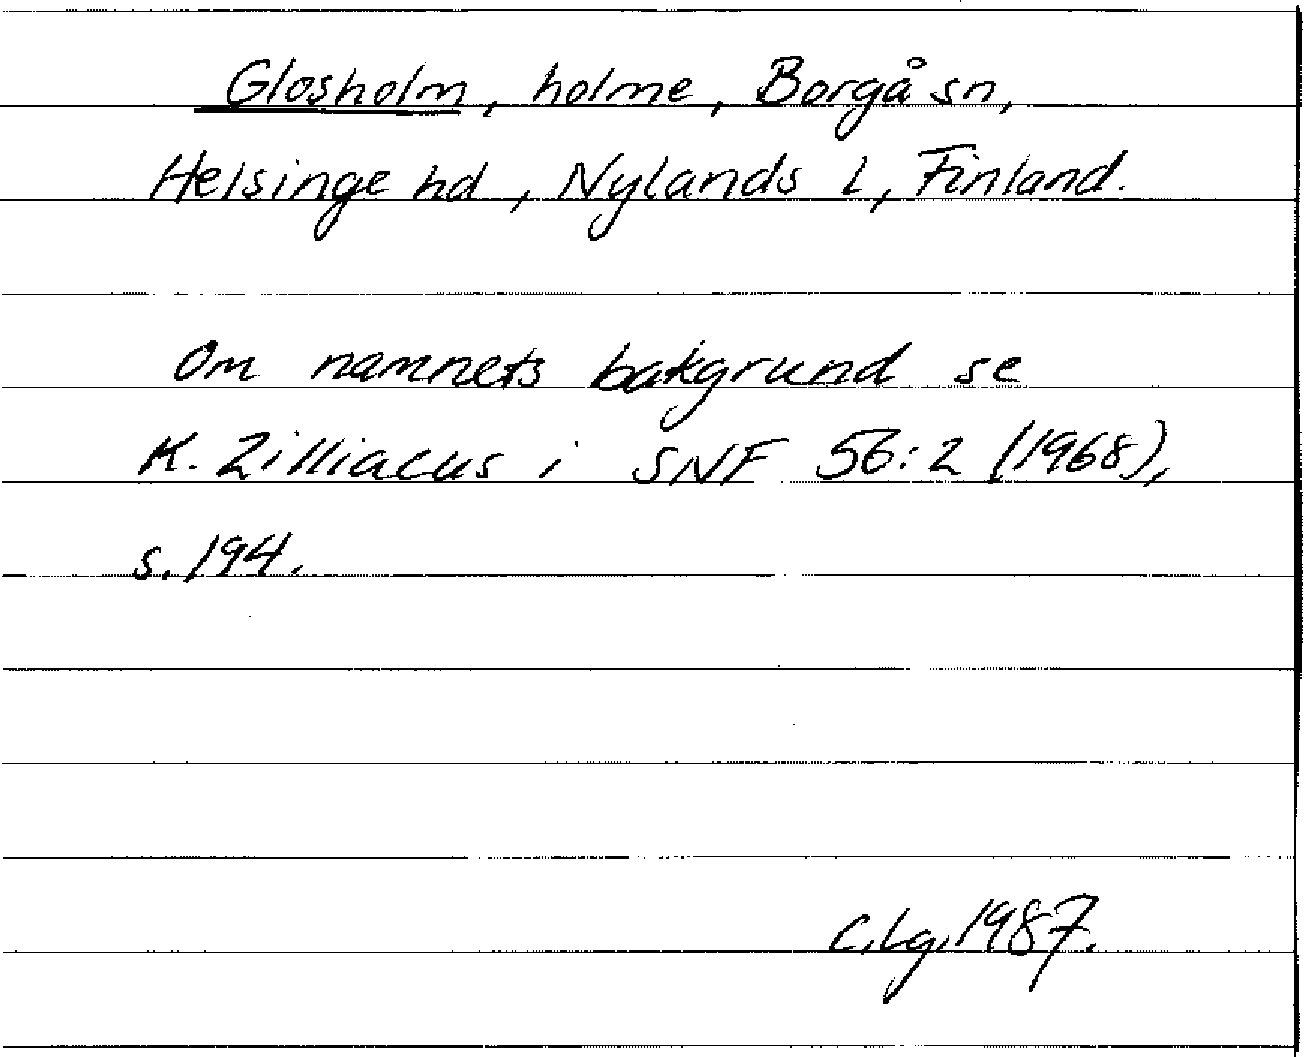 Glosholm, holme, Borgå sn,
Helsinge hd, Nylands l, Finland.
Om namnets bakgrund se
K. Zilliacus i SNF 56:2 (1968),
s. 194.
C.Lg. 1987.